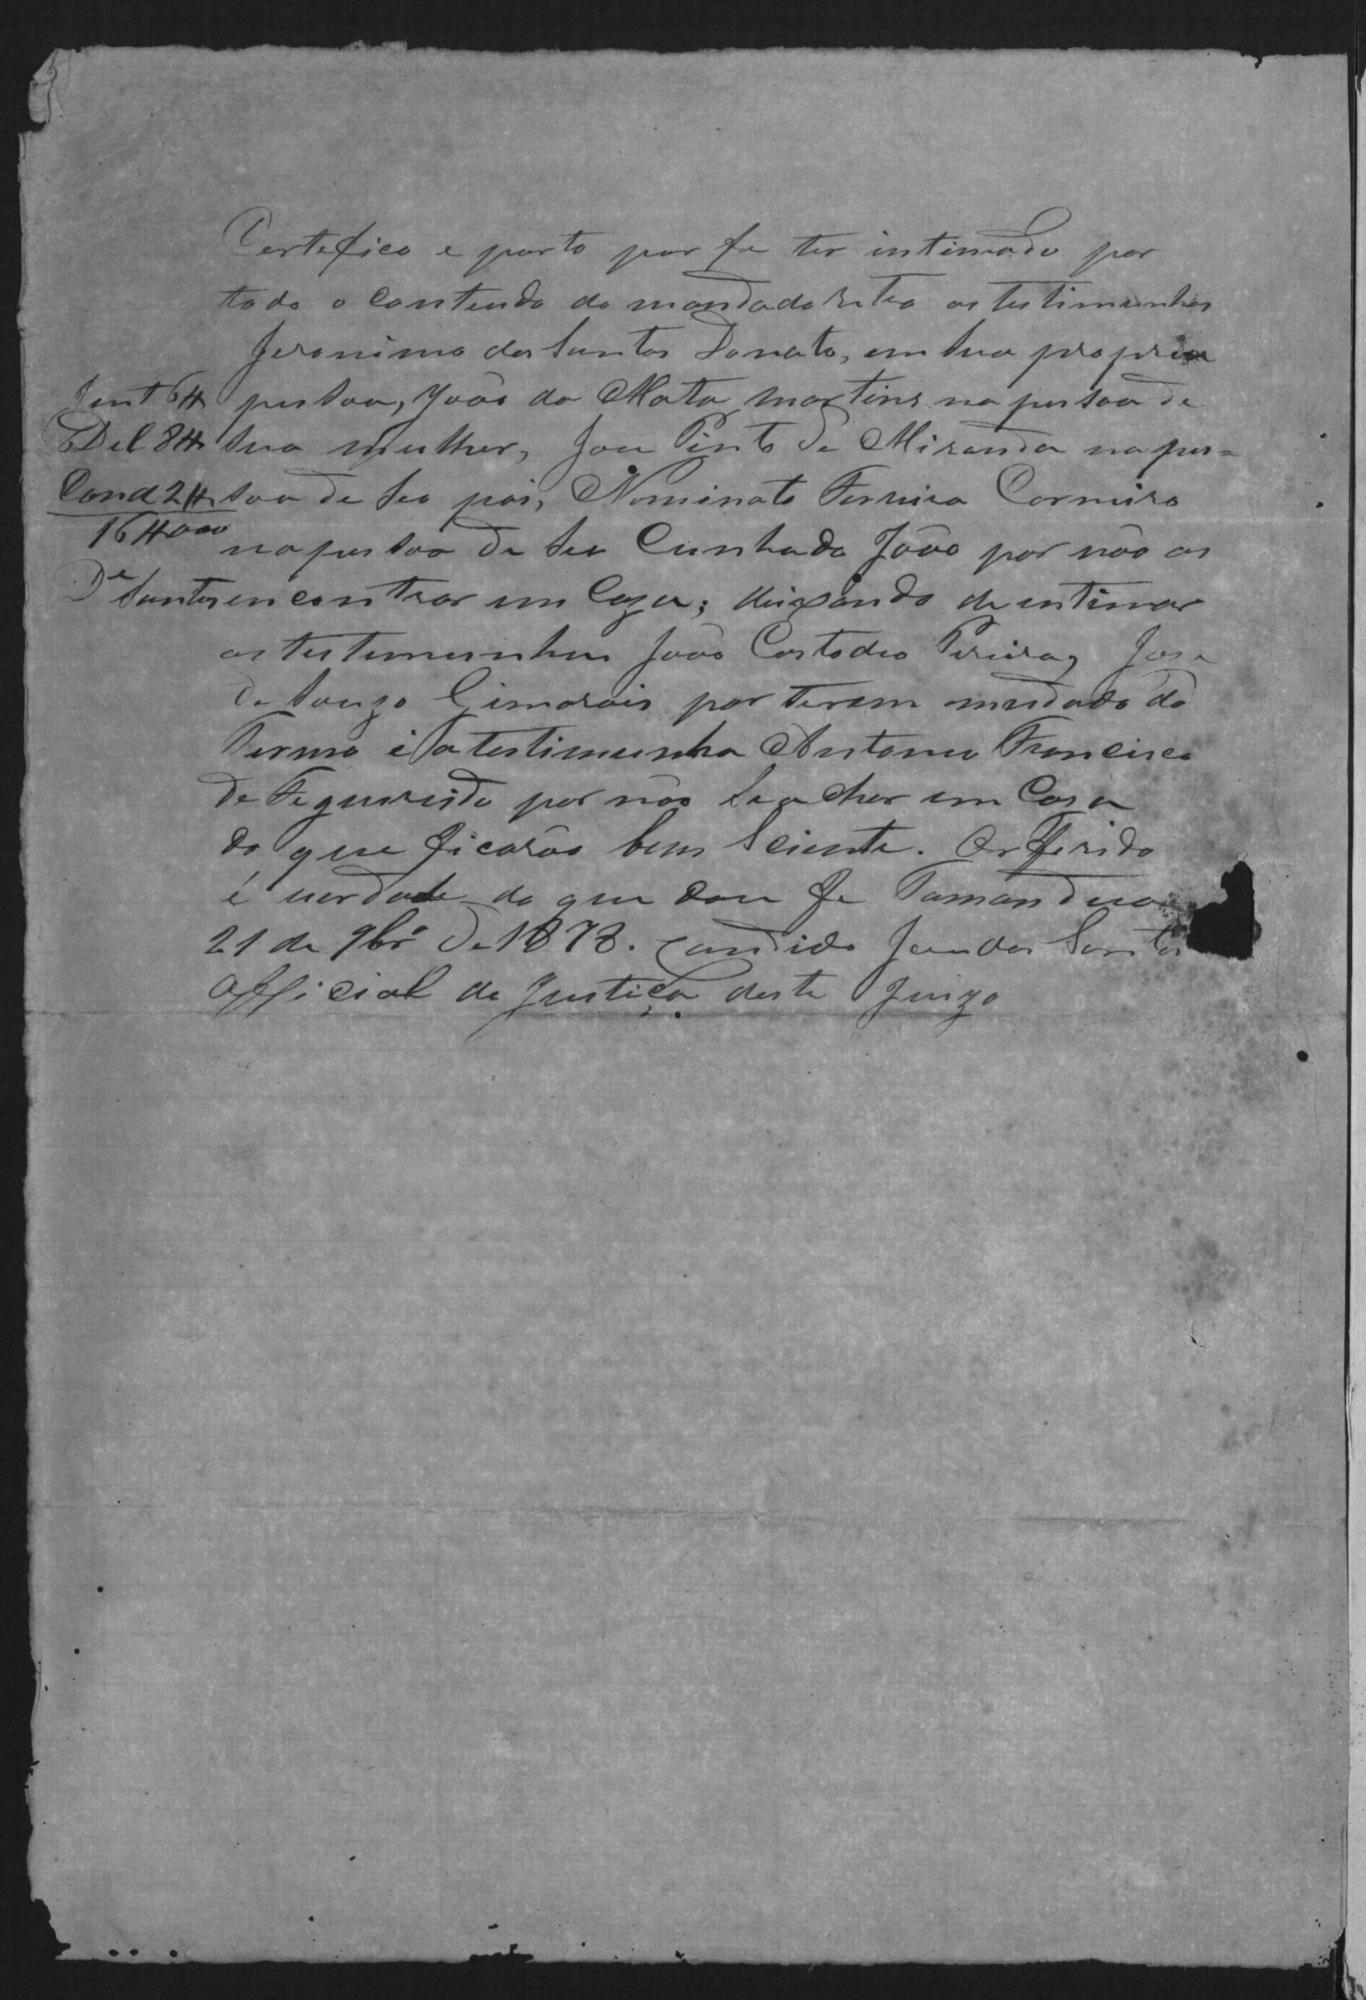 Certefico e porto por fe ter intimado por
todo o contendo do mandado retro as testimunhas
Jeronimo dos Santos Donato, em sua propria
Int 6# pessoa, João da Mata Martins na pessoa de
Del 8# sua mulher, Jose Pinto de Miranda na pes=
Cond 2# soa de seo pai, Nominato Ferreira Carneiro
16#000 na pessoa de seu Cunhado João por não os
Santos encontrar em Caza; deixando de intimar
as testemunhas João Costodio Pereira, Jose
de Souza Gimarais por terem mudado do
Termo e a testimunha Antonio Francisco
de Figueredo por não se achar em Casa
do que ficarão bem Sciente. O referido
é verdade do que dou fe Tamandua
21 de 9brº de 1873. Candido Jose dos Santos
Official de Justiça deste Juizo